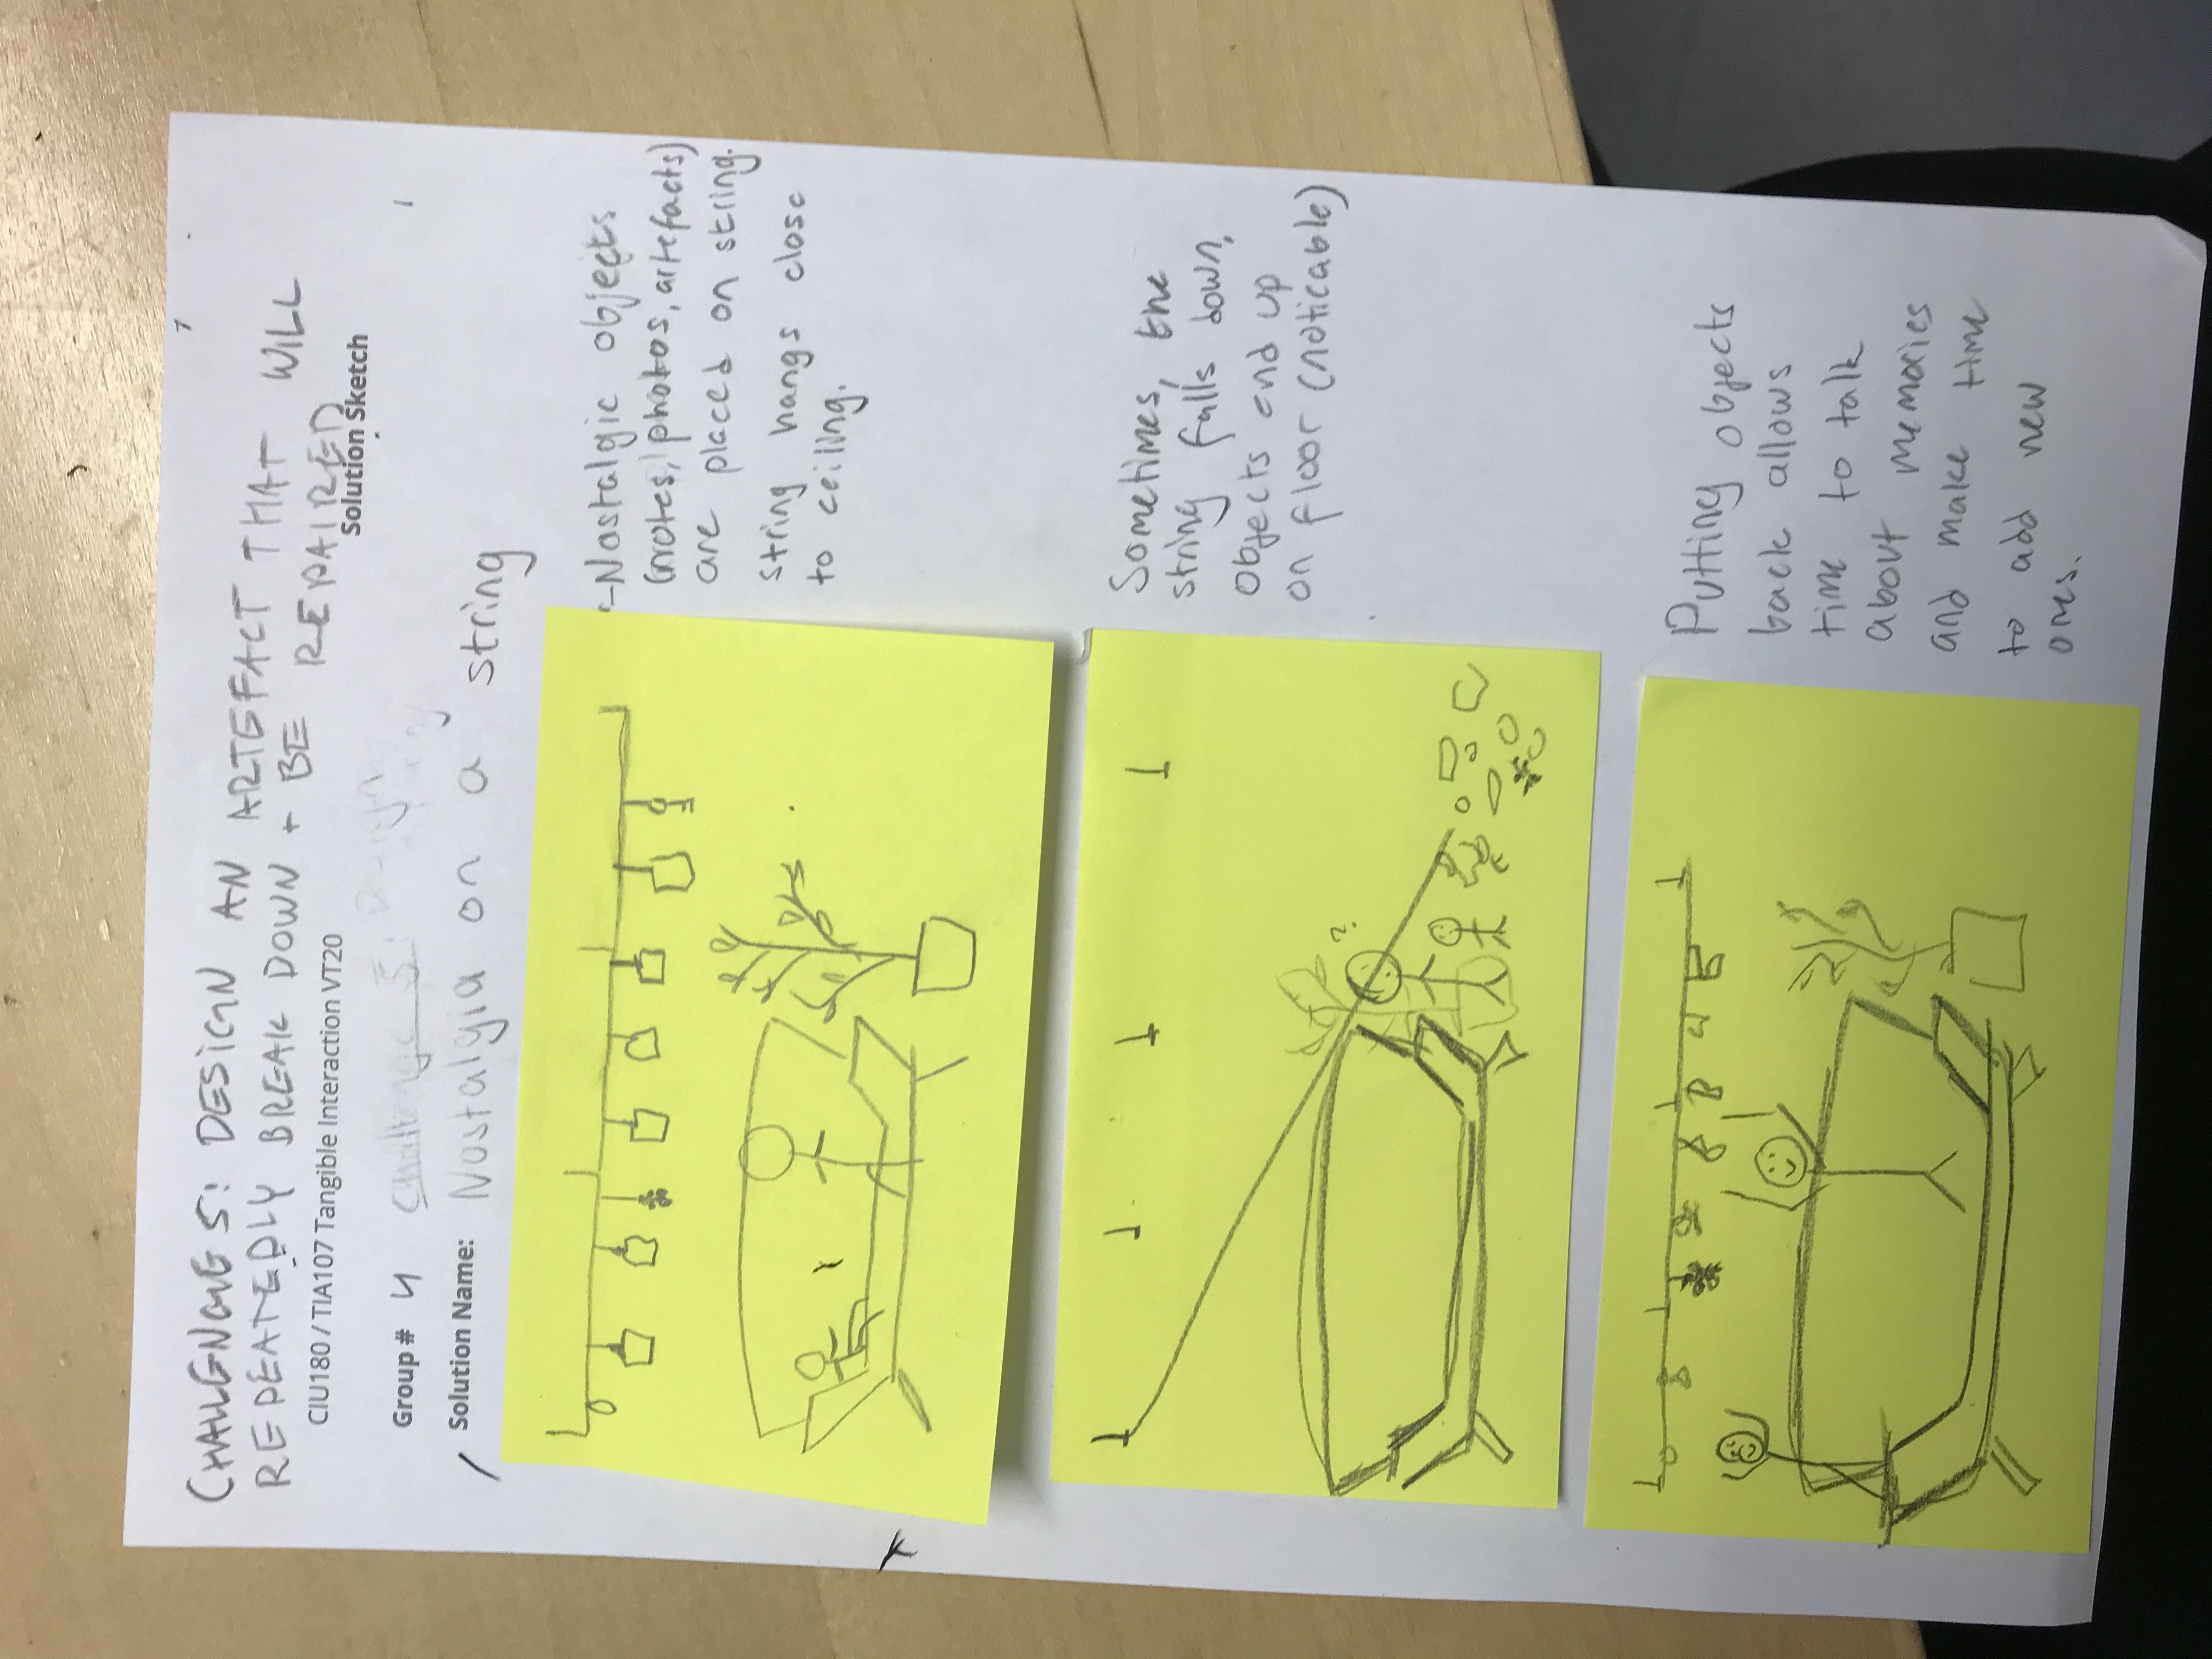 CHALLENGE 5: DESIGN AN ARTEFACT THAT WILL
REPEATEDLY BREAK DOWN + BE REPAIRED
CIU180 / TIA107 Tangible Interaction VT20
Solution Sketch
Group # 4 Challenge 5: Design
Solution Name: Nostalgia on a string
-Nostalgic objects
(notes, photos, artefacts)
are placed on string.
string hangs close
to ceiling.
Sometimes, the
string falls down,
objects end up
on floor (noticable)
?
Putting objects
back allows
time to talk
about memories
and make time
to add new
ones.